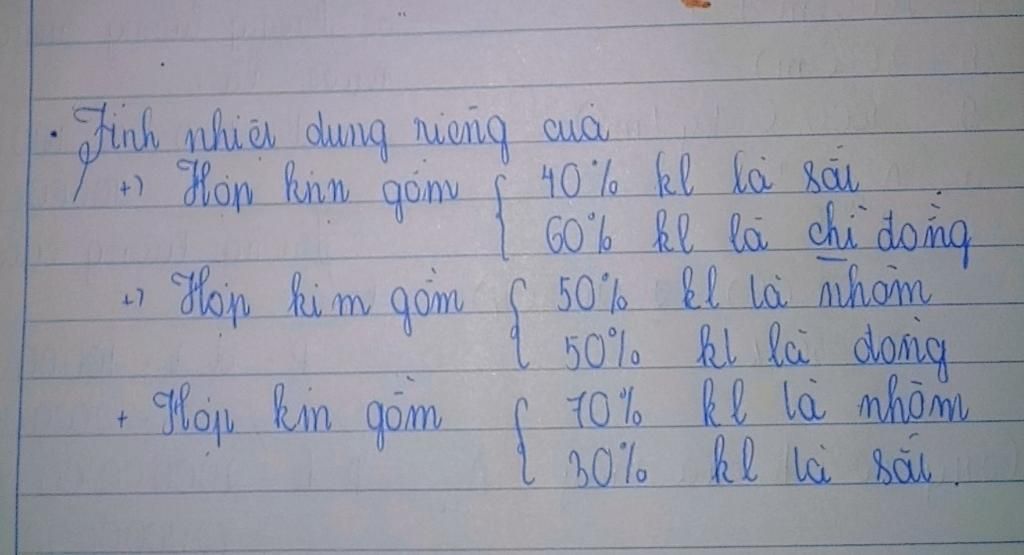 . Tính nhiệt dung riêng của
+) Hợp kim gồm { 40% kl là sắt
60% kl là chì đồng
+) Hợp kim gồm { 50% kl là nhôm
50% kl là đồng
+ Hợp kim gồm { 70% kl là nhôm
30% kl là sắt.